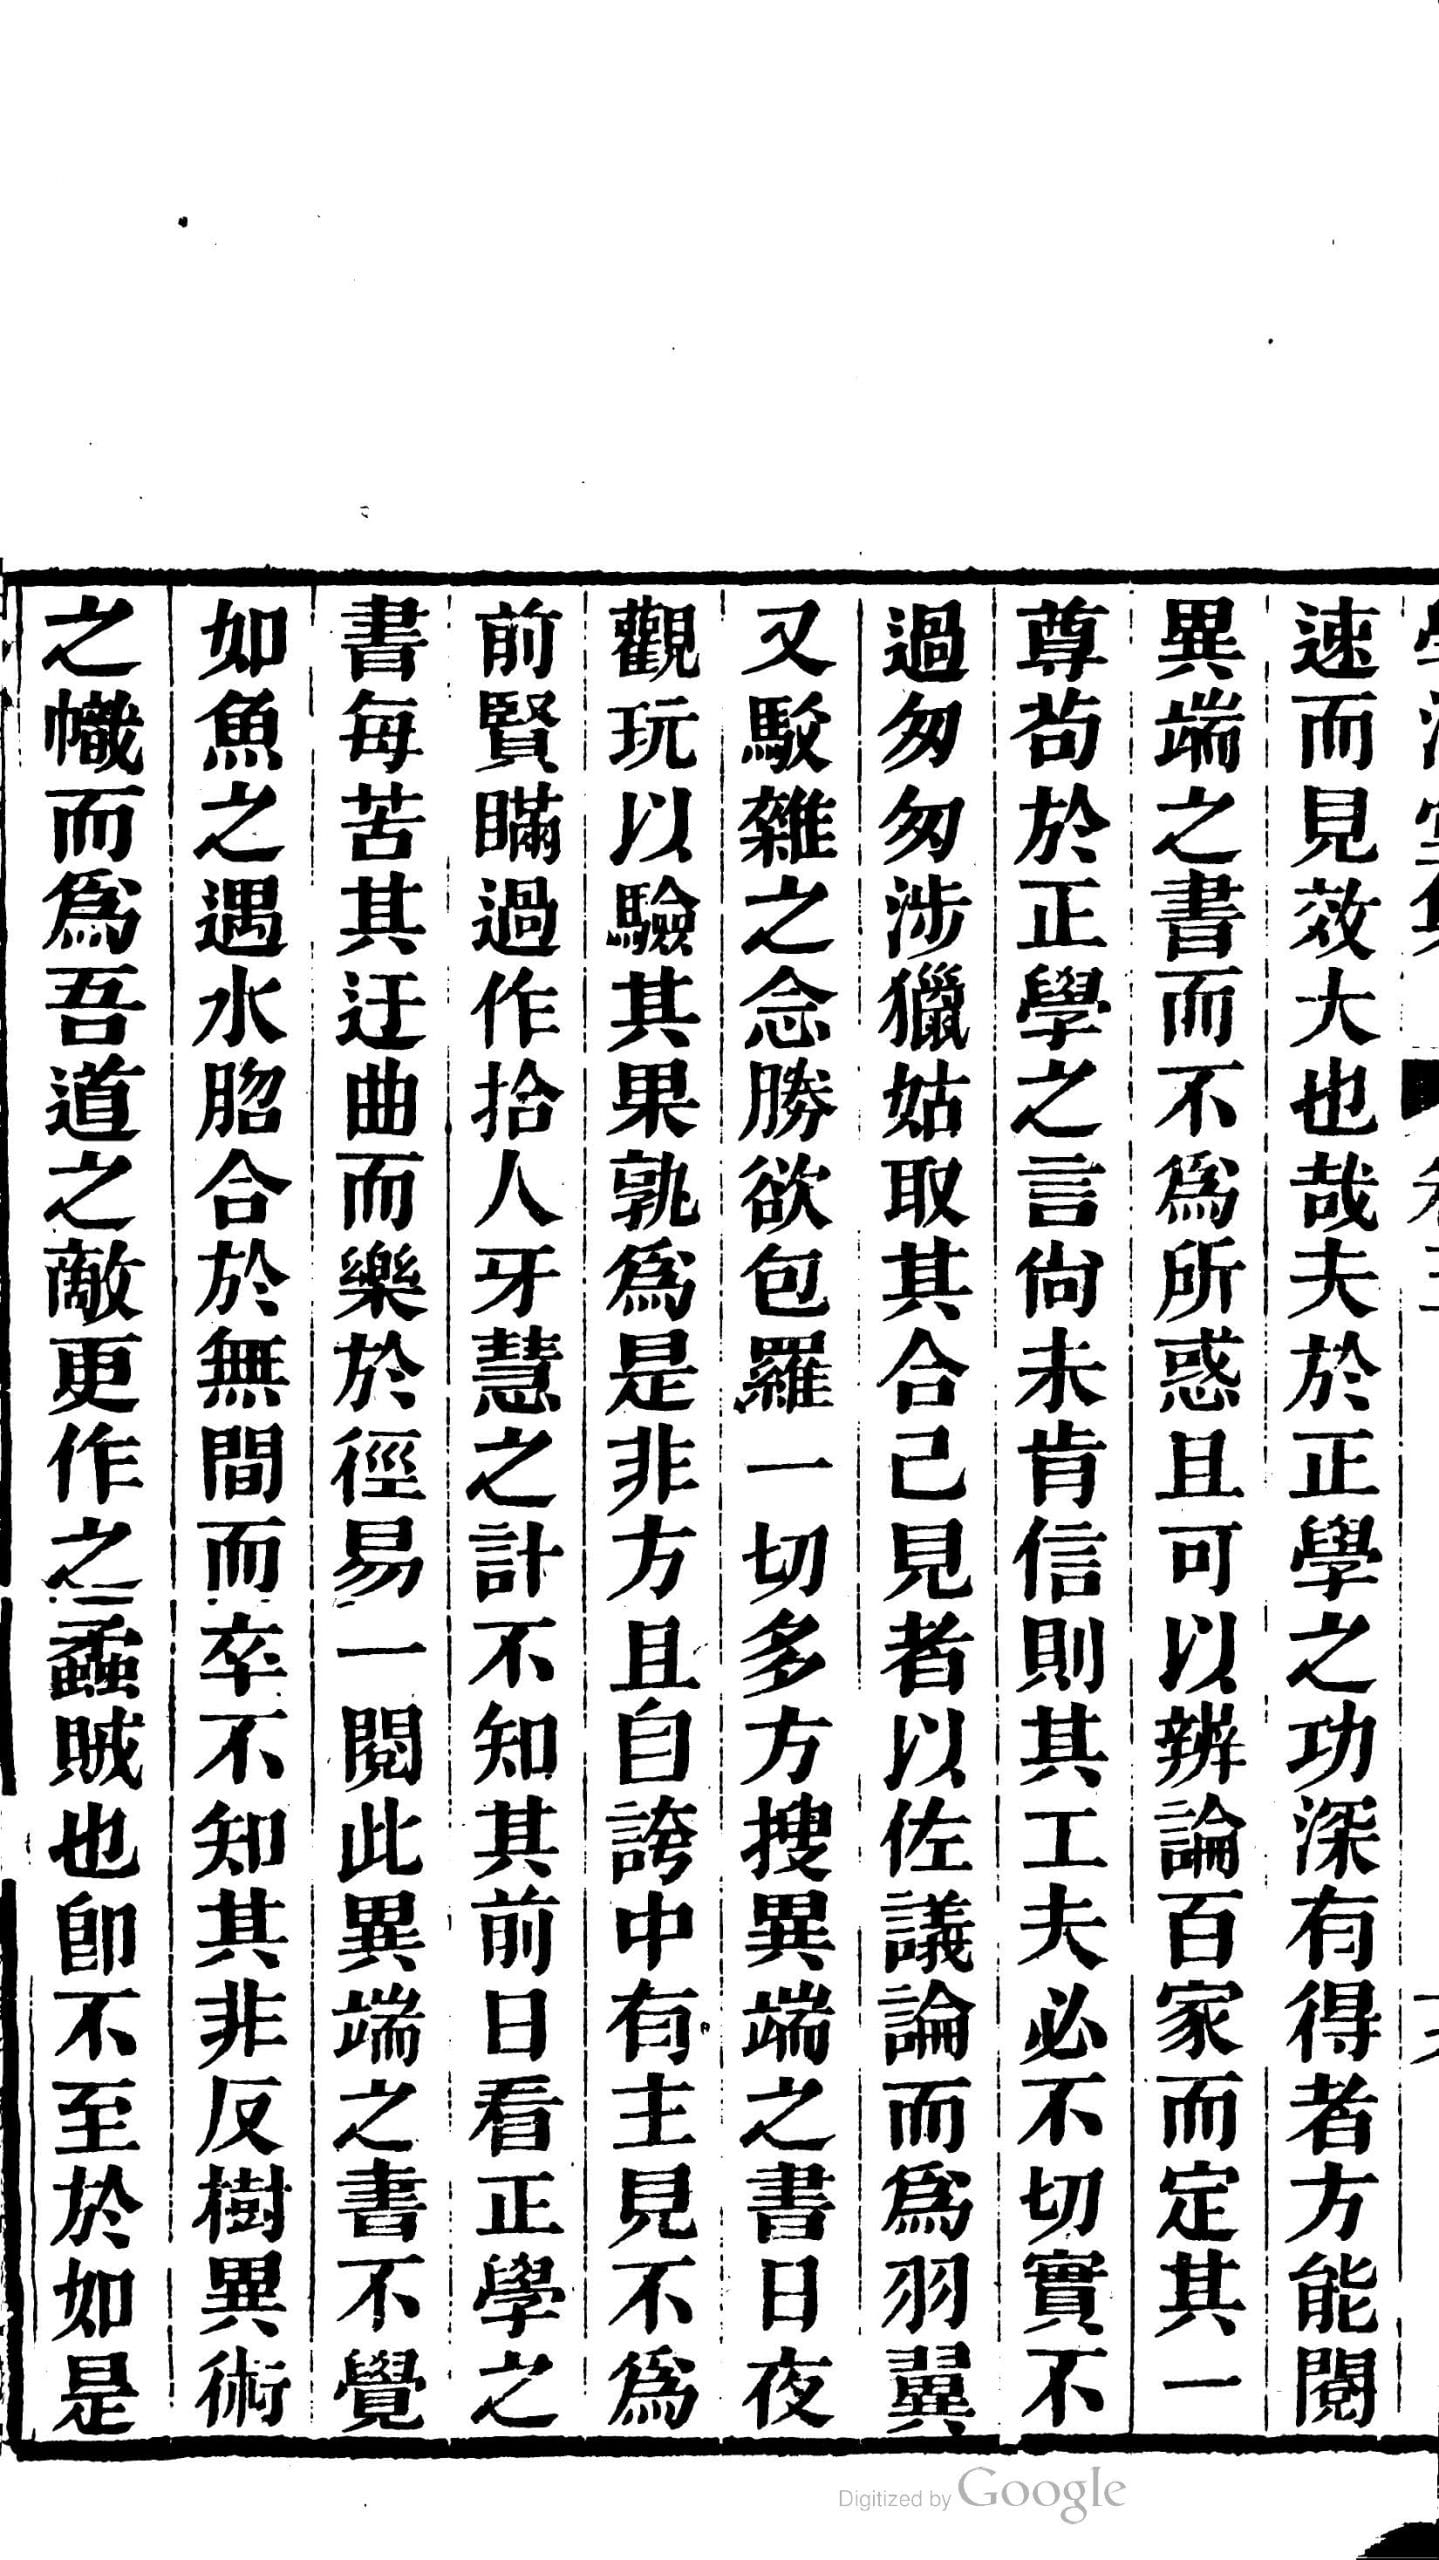 速而見效大也哉夫於正學之功深有得者方能閱
異端之書而不爲所惑且可以辨論百家而定其一
尊茍於正學之言尙未肯信則其工夫必不切實不
過匆匆涉獵姑取其合己見者以佐議論而爲羽翼
又駁雜之念勝欲包羅一切多方搜異端之書日夜
觀玩以驗其果孰爲是非方且自誇中有主見不爲
前賢瞞過作拾人牙慧之計不知其前日看正學之
書每苦其迂曲而樂於徑易一閱此異端之書不覺
如魚之遇水脗合於無間而卒不知其非反樹異術
之幟而爲吾道之敵更作之蟊賊也卽不至於如是
Digitized by Google